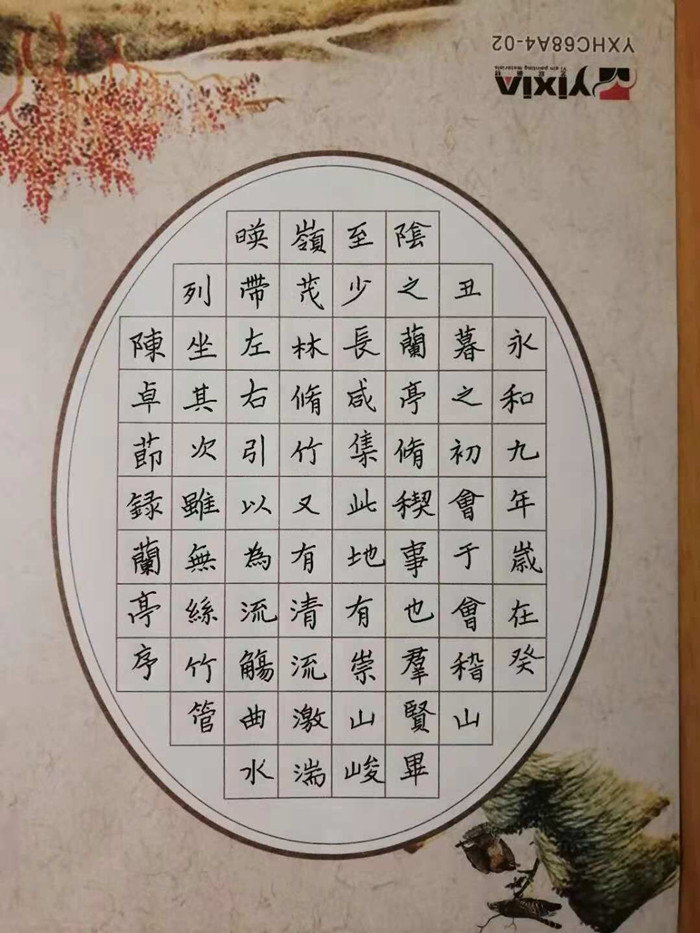 永和九年嵗在癸
丑暮之初會于會稽山
陰之蘭亭脩稧事也羣賢畢
至少長咸集此地有崇山峻
嶺茂林脩竹又有清流激湍
暎帶左右引以為流觴曲水
列坐其次雖無絲竹管
陳卓莭録蘭亭序
YXHC68A4-02